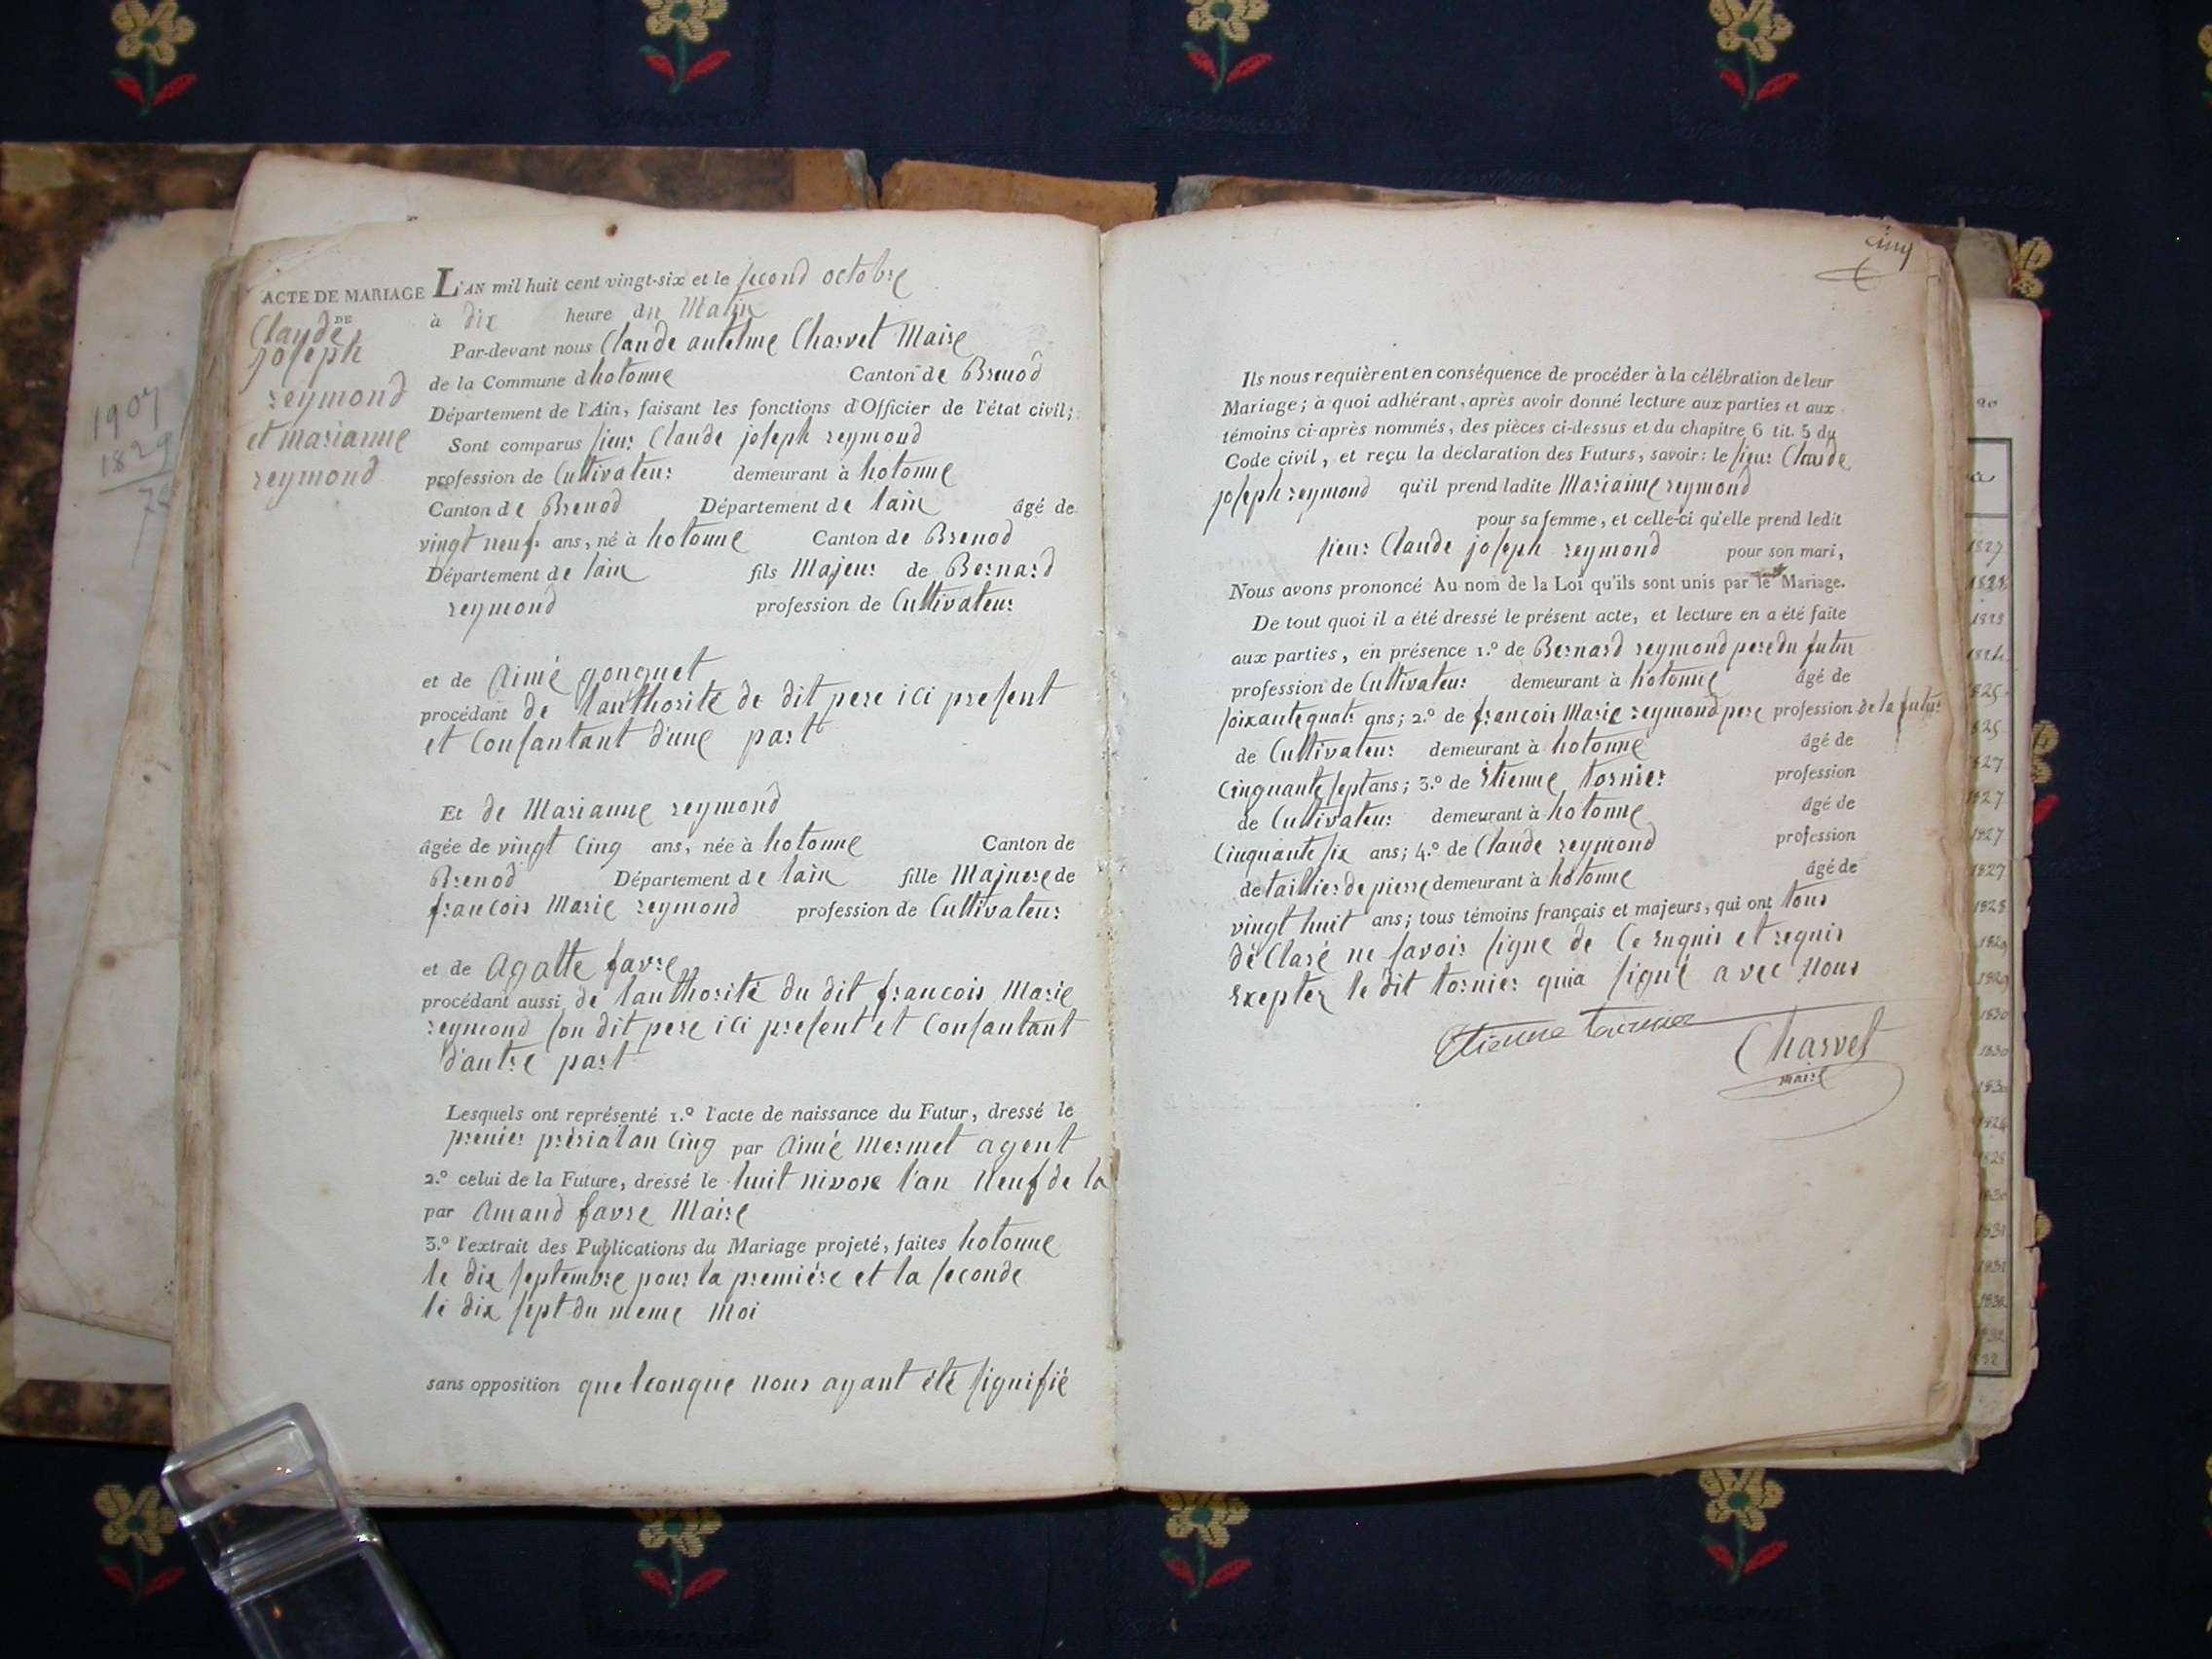 ACTE DE MARIAGE
DE
Claude
joseph
reymond
et marianne
reymond
L'AN mil huit cent vingt-six et le second octobre
à dix heure du Matin
Par-devant nous Claude antelme Charvet Maire
de la Commune dhotonne Canton de Brenod
Département de l'Ain, faisant les fonctions d'Officier de l'état civil;
Sont comparus sieur Claude joseph reymond
profession de Cultivateur demeurant à hotonne
Canton de Brenod Département de lain âgé de
vingt neuf ans, né à hotonne Canton de Brenod
Département de lain fils Majeur de Bernard
reymond profession de Cultivateur
et de Aimé gonguet
procédant de lauthorité de dit pere ici present
et Consantant d'une part
Et de Marianne reymond
âgée de vingt Cinq ans, née à hotonne Canton de
Brenod Département de lain fille Majeure de
francois Marie reymond profession de Cultivateur
et de Agatte favre
procédant aussi de lauthorité du dit francois Marie
reymond son dit pere ici present et Consantant
d'autre part
Lesquels ont représenté 1.º l'acte de naissance du Futur, dressé le
premier prérial an Cinq par Aimé Mermet agent
2.º celui de la Future, dressé le huit nivose l'an Neuf de la
par Amand favre Maire
3.º l'extrait des Publications du Mariage projeté, faites hotonne
le dix septembre pour la première et la seconde
le dix sept du meme Moi
sans opposition quelconque nous ayant été signifié
1907
1829
78
Cinq
Ils nous requièrent en conséquence de procéder à la célébration de leur
Mariage; à quoi adhérant, après avoir donné lecture aux parties et aux
témoins ci-après nommés, des pièces ci-dessus et du chapitre 6 tit. 5 du
Code civil, et reçu la déclaration des Futurs, savoir: le sieur Claude
joseph reymond qu'il prend ladite Mariainne reymond
pour sa femme, et celle-ci qu'elle prend ledit
sieur Claude joseph reymond pour son mari,
Nous avons prononcé Au nom de la Loi qu'ils sont unis par le Mariage.
De tout quoi il a été dressé le présent acte, et lecture en a été faite
aux parties, en présence 1.º de Bernard reymond pere du futur
profession de Cultivateur demeurant à hotonne âgé de
soixante quatr ans; 2.º de francois Marie reymond pere profession de la futur
de Cultivateur demeurant à hotonne âgé de
Cinquante sept ans; 3.º de Etienne tornier profession
de Cultivateur demeurant à hotonne âgé de
Cinquante six ans; 4.º de Claude reymond profession
de taillier de pierre demeurant à hotonne âgé de
vingt huit ans; tous témoins français et majeurs, qui ont tous
déClaré ne savoir signe de Ce enquis et requis
Exepter le dit tornier quia signé avec Nous
Etienne tournier
Charvet
maire